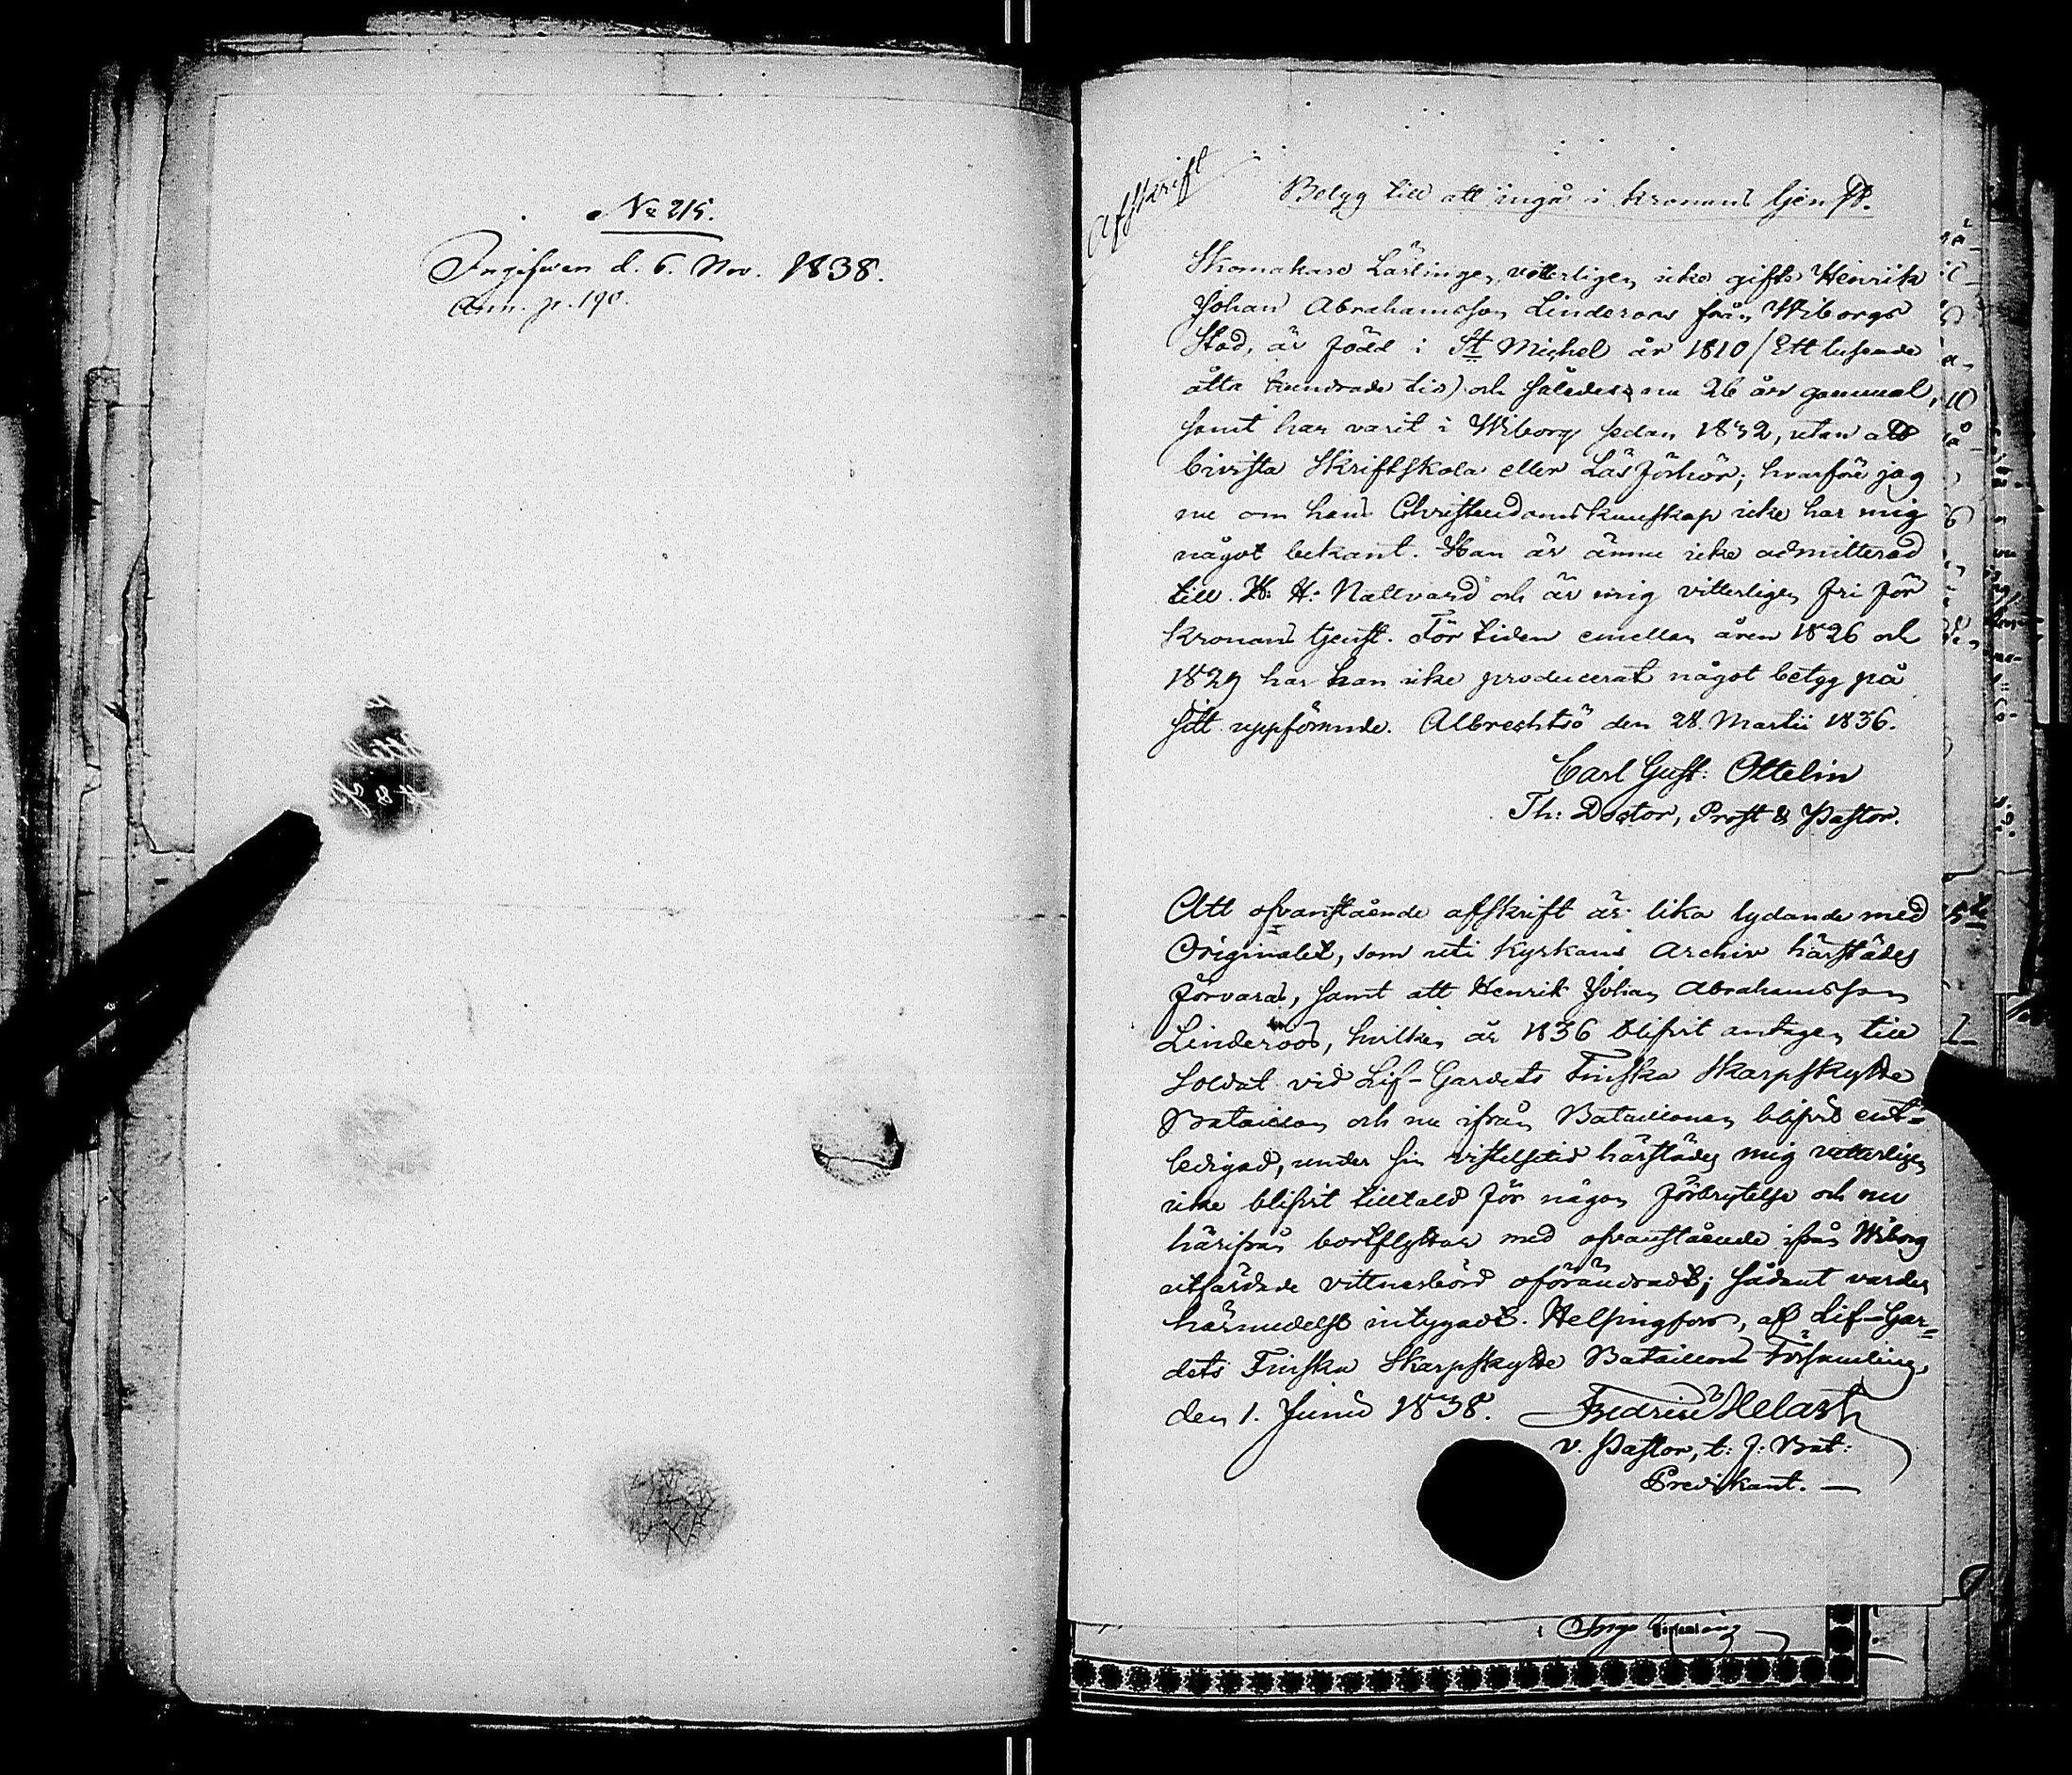 No 215.
Ingifwen d. 6. Nov. 1838.
Ann. p. 190.
Afskrift
Betyg till att ingå i Kronans tjenst.
Skomakare Lärlingen, vitterligen icke gifte Henrik
Johan Abrahamsson Linderoos från Wiborgs
Stad, är född i St Michel år 1810 / Ett tusende
åtta hundrade tio) och således nu 26 år gammal,
samt har varit i Wiborg sedan 1832, utan att
bivista Skriftskola eller Läsförhör; hvarföre jag
nu om hans Christendomskunskap icke har mig
något bekant. Han är ännu icke admitterad
till H: H: Nattvard och är mig vitterligen fri för
Kronans tjenst. För tiden emellan åren 1826 och
1829 har han icke producerat något betyg på
sitt uppförande. Albrechtsö den 28 Martii 1836.
Carl Gust: Ottelin
Th: Doctor, Prost & Pastor.
Att ofvanstående afskrift är lika lydande med
Originalet, som uti Kyrkans Archiv härstädes
förvaras, samt att Henrik Johan Abrahamsson
Linderoos, hvilken år 1836 blifvit antagen till
Soldat vid Lif-Gardets Finska Skarpskytte
Bataillon och nu ifrån Bataillonen blifvit ent=
ledigad, under sin vistelsetid härstädes mig vetterligen
icke blifvit tilltald för någon förbrytelse och nu
härifrån bortflyttar med ofvanstående ifrån Wiborg
utfärdade vittnesbörd oförändradt; sådant varder
härmedelst intygadt. Helsingfors, af Lif-Gar=
dets Finska Skarpskytte Bataillons Församling,
den 1. Junii 1838. Fredric Helasth
v. Pastor, t: f: Bat:
Predikant.